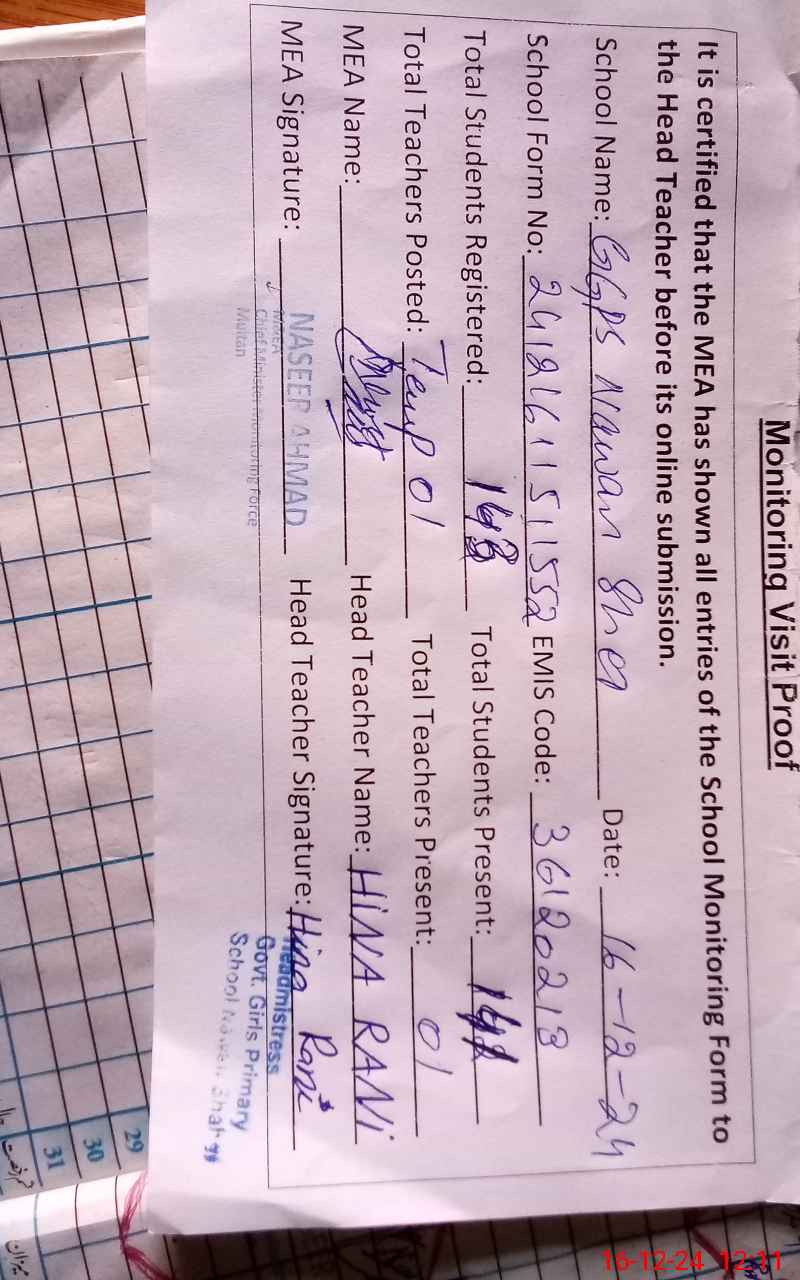 Monitoring Visit Proof
It is certified that the MEA has shown all entries of the School Monitoring Form to
the Head Teacher before its online submission.
School Name: GGPS Nawan Sher Date: 16-12-24
School Form No: EMIS Code: 36120213
Total Students Registered: Total Students Present:
Total Teachers Posted: Temp 01 Total Teachers Present: 01
MEA Name: Head Teacher Name: HINA RANI
MEA Signature: NASEER AHMAD Head Teacher Signature: Hina Rani
MEA
Chief Minister Monitoring Force
Multan
Headmistress
Govt. Girls Primary
School Nawan Shah
29
30
31
16-12-24 12:11